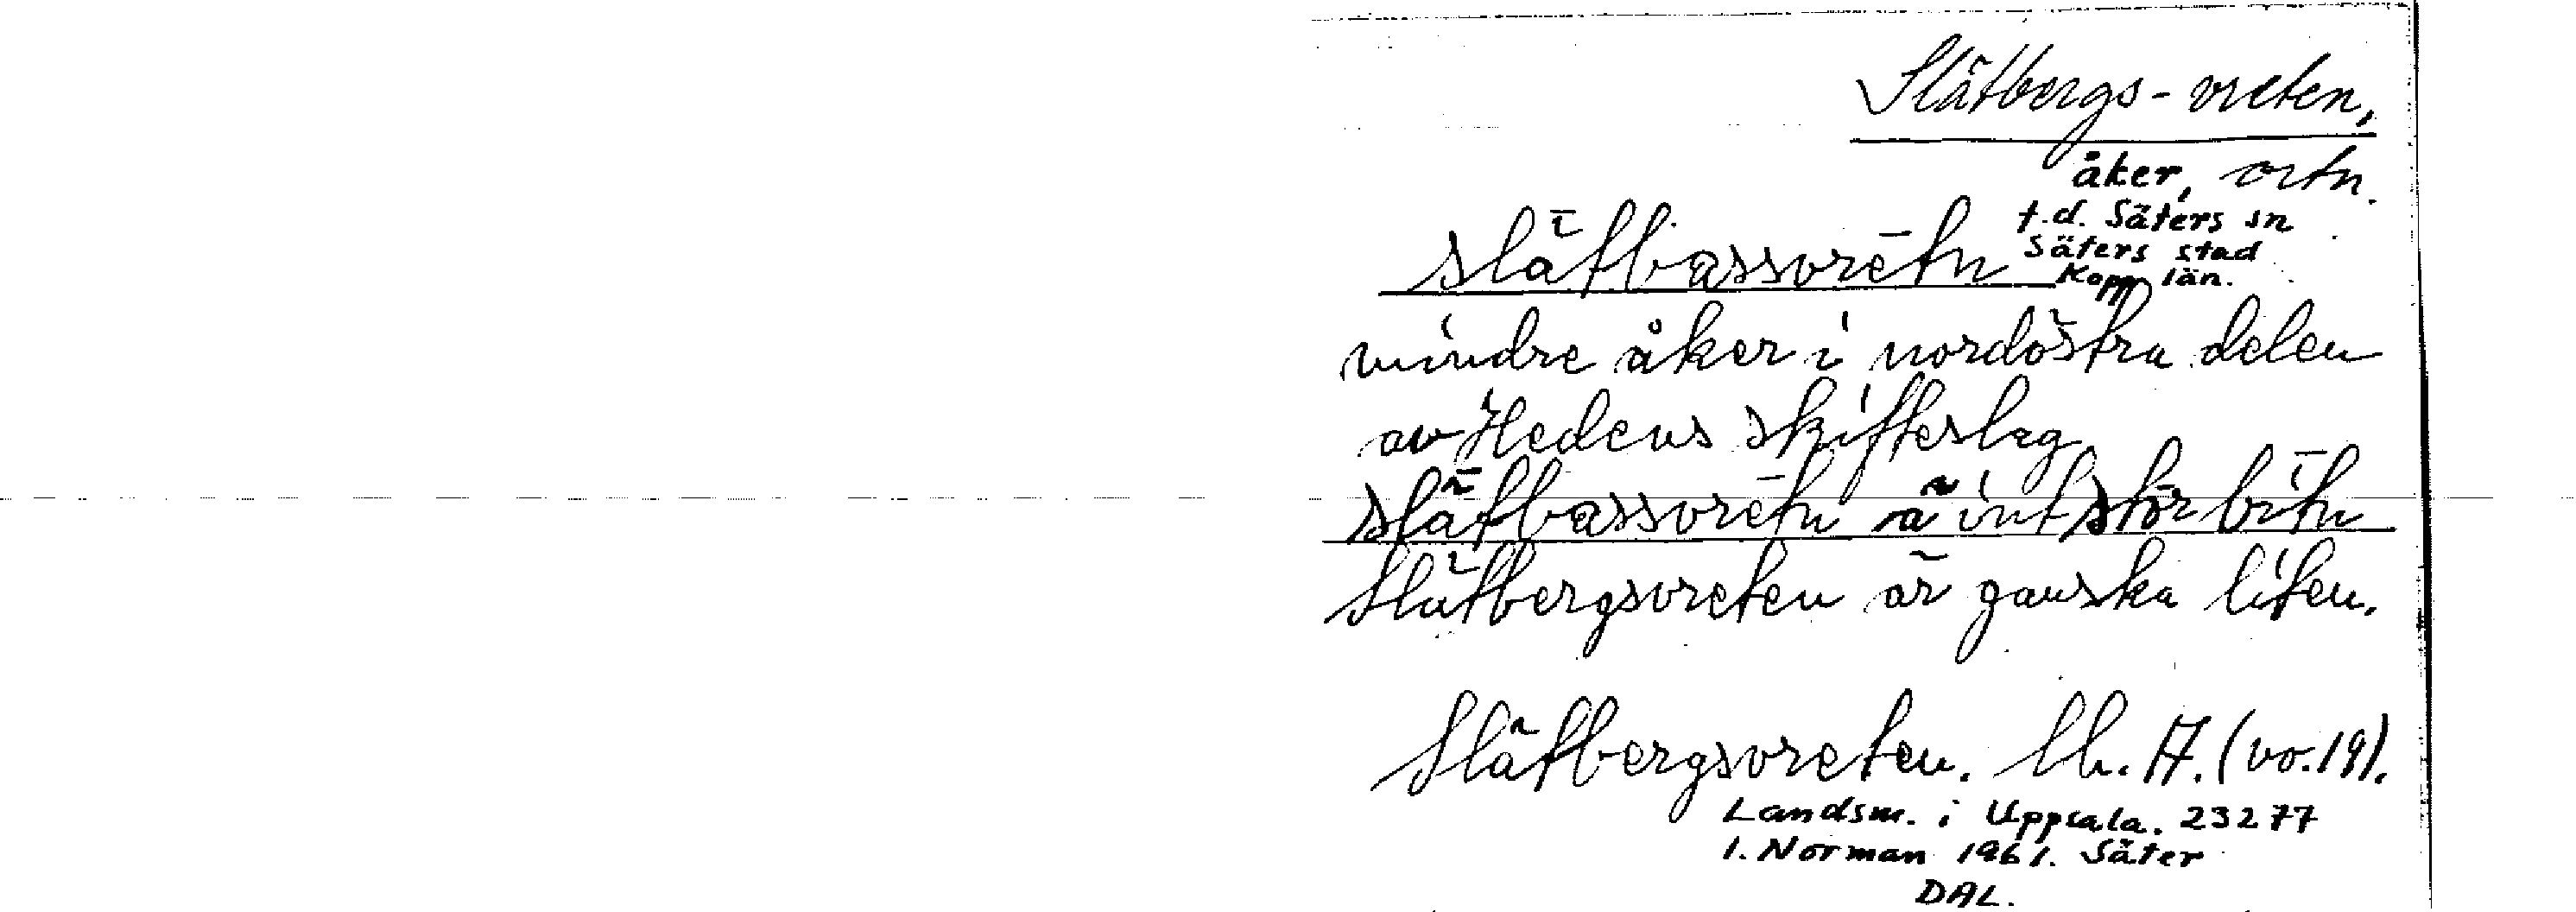 Slätbergs-vreten,
åker, ortn.
t.d. Säters sn
Säters stad
Kopp län.
slätbassvrētn
mindre åker i nordöstra delen
av Hedens skifteslag
slätbassvrētn ä int stor bītn
Slätbergsvreten är ganska liten.
Slätbergsvreten. Ll. H. (vo. 19).
Landsm. i Uppsala. 23277
I. Norman 1961. Säter
DAL.